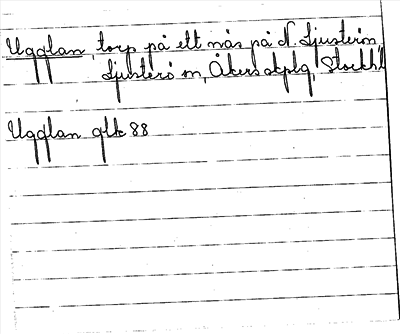 Ugglan, torp på ett näs på N Ljusterön,
Ljusterö sn, Åkers skplg, Stockh.l
Ugglan glk 88